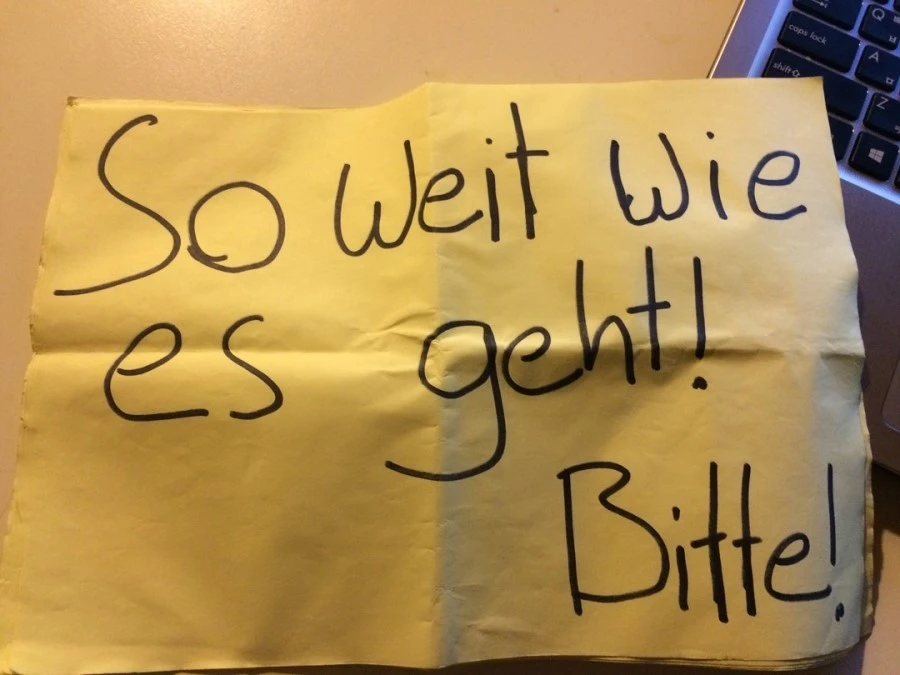 So weit wie
es geht!
Bitte!
caps lock
shift
Q
A
Z